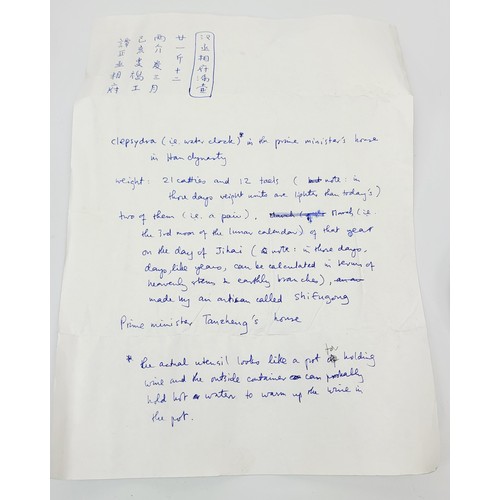 丞相府漏壺
廿一斤十二
兩 三月
己亥史 工
譚正丞相府
clepsydra (i.e. water clock)* in the prime minister's house
in Han dynasty
weight: 21 catties and 12 taels ( note: in
those days weight units are lighter than today's)
two of them (i.e. a pair), March (i.e.
the 3rd moon of the lunar calendar) of that year
on the day of Jihai ( note: in those days,
days, like years, can be calculated in terms of
heavenly stems & earthly branches),
made by an artisan called Shifugong
Prime minister Tanzheng's house
* the actual utensil looks like a pot for holding
wine and the outside container can probably
hold hot water to warm up the wine in
the pot.